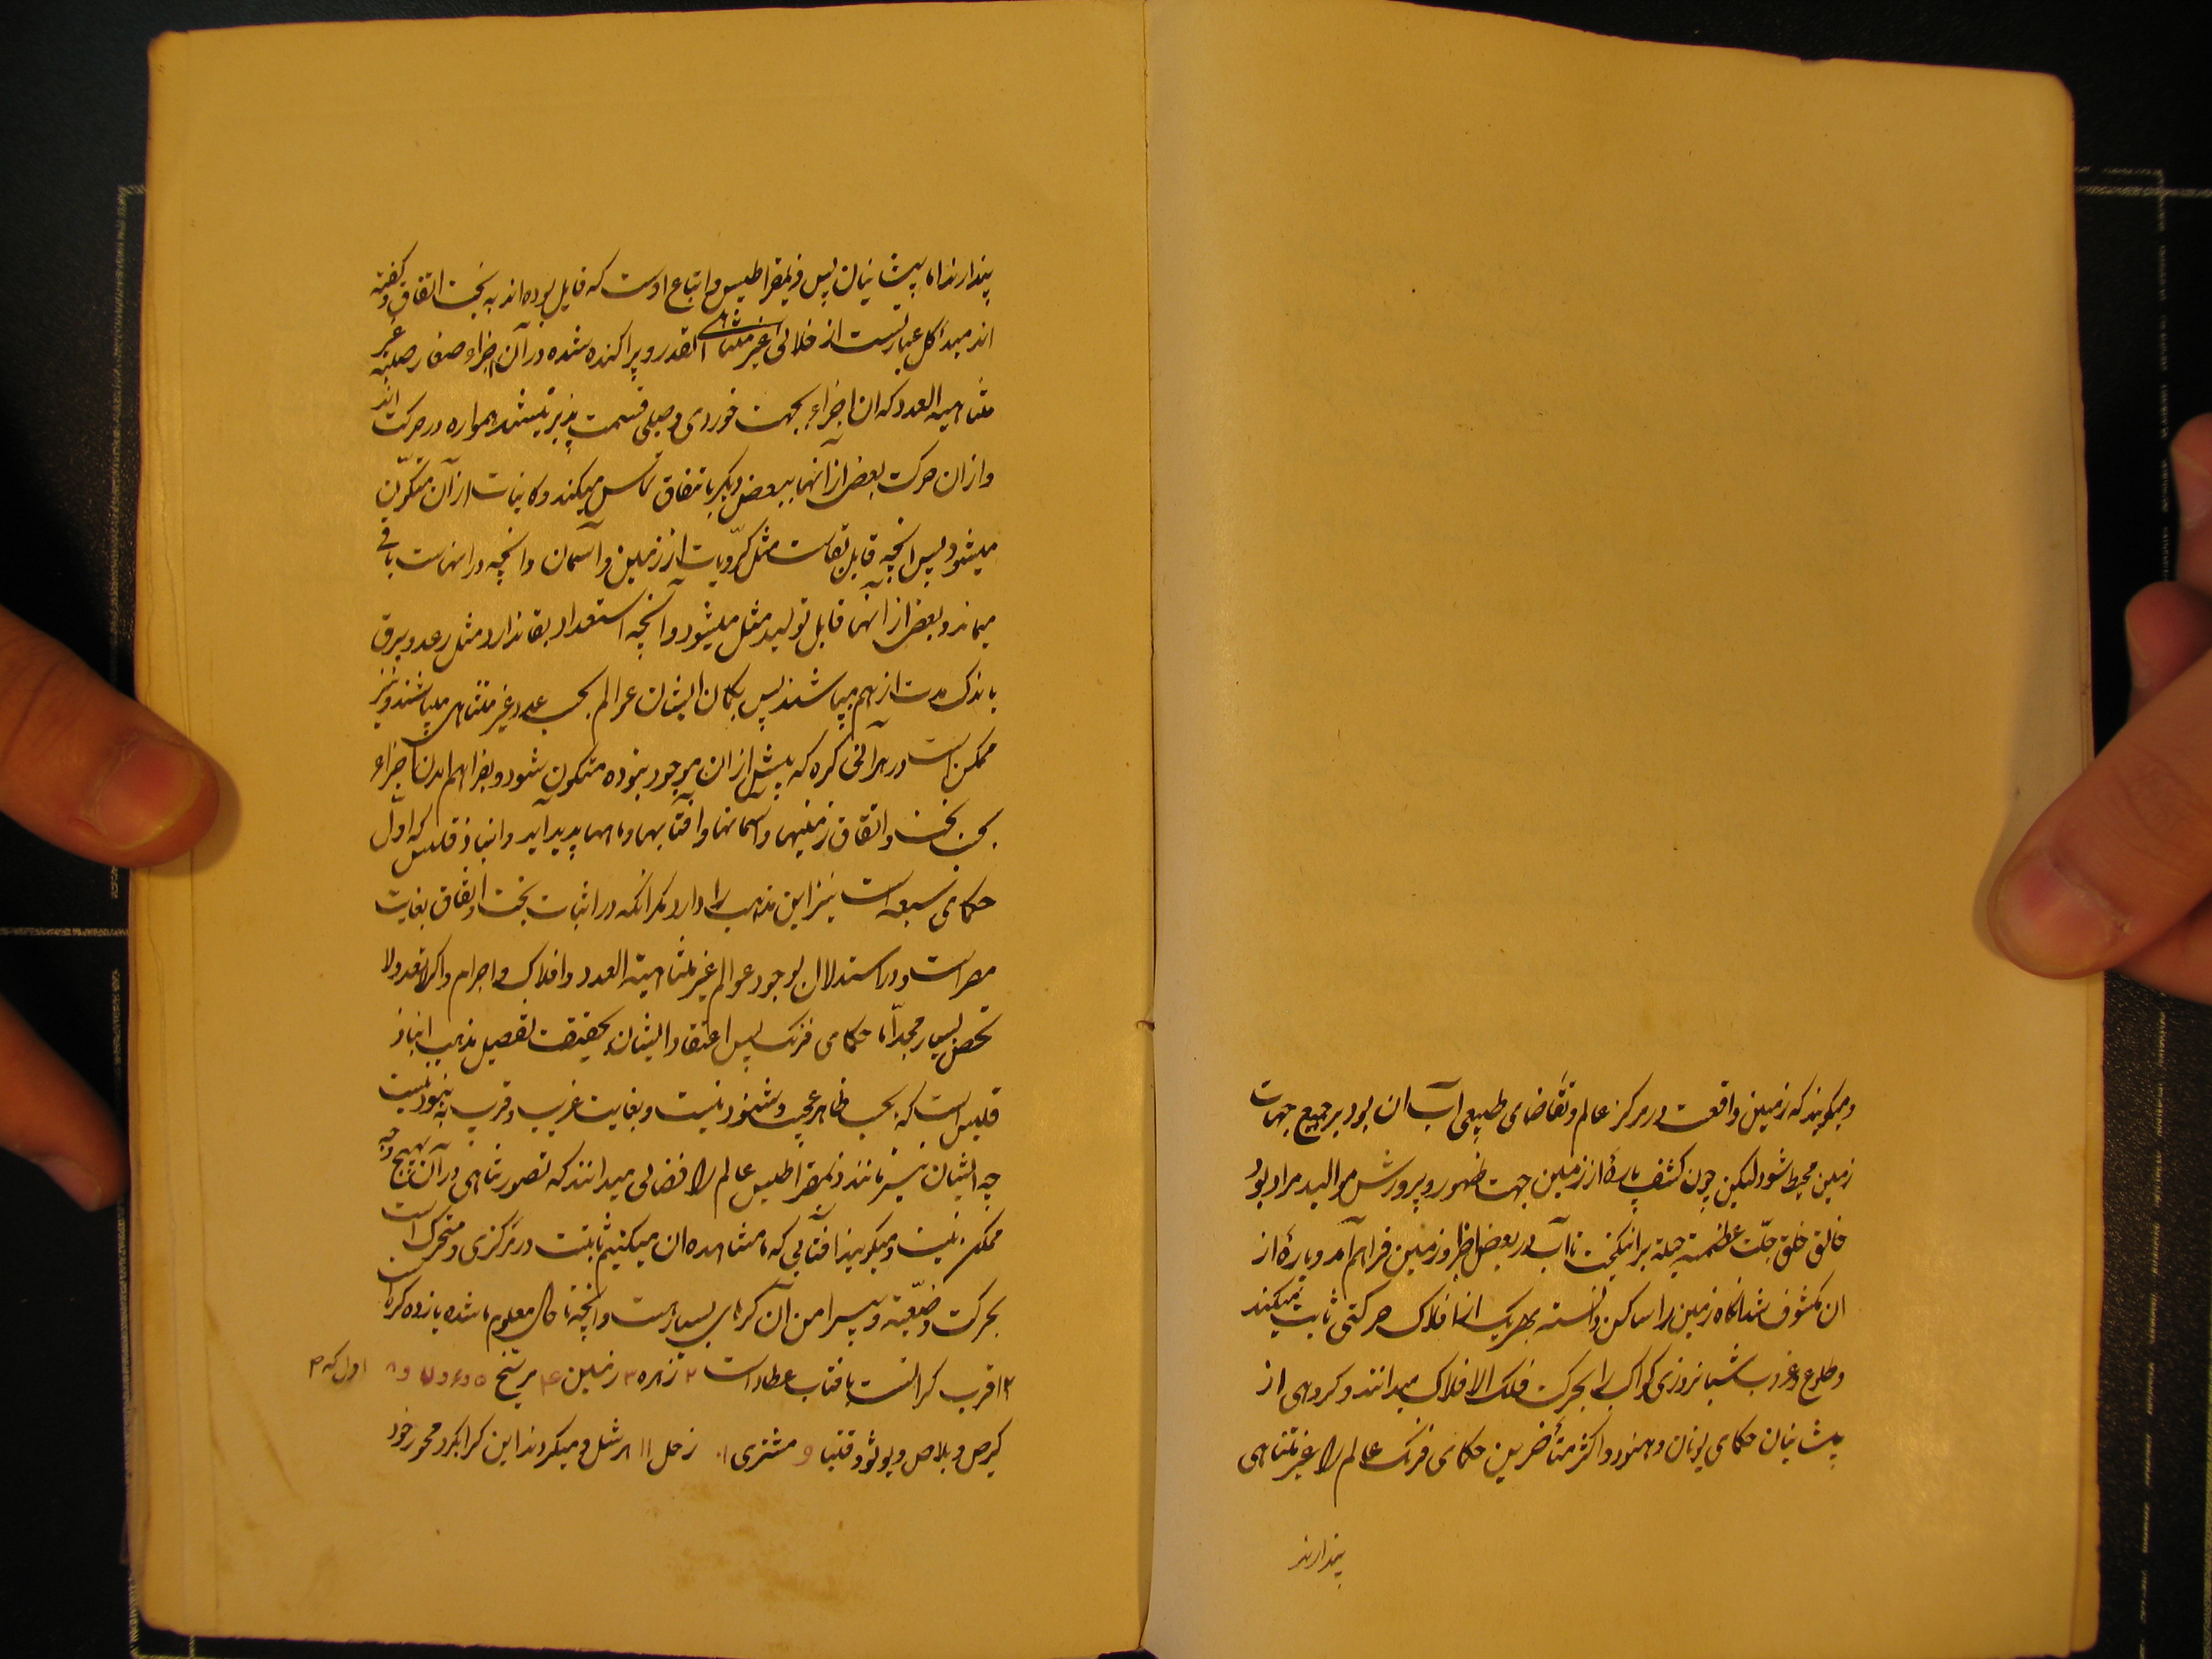 و میگویند که زمین واقعست در مرکز عالم و تقاضای طبیعی آب ان بود بر جمیع جهات
زمین محیط شود لیکن چون کشف پارهٔ از زمین جهت ظهور و پرورش موالید مراد بود
خالق خلق جلّت عظمته حیله برانگیخت تا آب در بعض اطراف زمین فراهم آمد و پارهٔ از
ان مکشوف شد انگاه زمین را ساکن دانسته بهر یک از افلاک حرکتی ثابت میکند
و طلوع و غروب شبانروزی کواکب را بحرکت فلک الافلاک میدانند و کروهی از
پیشانیان حکمای یونان و هنود و اکثر متأخرین حکمای فرنک عالم را غیر متناهی
پندارند
پندارند اما پیشانیان پس ذیمقراطیس و اتباع اوست که قایل بوده اند به بخت و اتفاق و گفته
اند مبدأ کل عبارتست از خلائی غیر متناهی القدر و پراکنده شده در آن اجزاء صغار صلبه غیر
متناهیه العدد که ان اجزاء بجهت خوردی و صلبی قسمت پذیر نیستند همواره در حرکت اند
و از ان حرکت بعض از آنها ببعض دیگر باتفاق تماس میکند و کاینات از آن متکوّن
میشود پس انچه قابل بقاست مثل کرّویات از زمین و آسمان و انچه در انهاست باقی
میماند و بعض از انها قابل تولید مثل میشود و آنچه استعداد بقا ندارد مثل رعد و برق
باندک مدت از هم میپاشند پس بگمان ایشان عوالم بحسب عدد غیر متناهی میباشند و نیز
ممکن است در هر آنی کره که پیش از ان موجود نبوده متکون شود و بفراهم امدن اجزاء
بحسن بخت و اتفاق زمینها و آسمانها و افتابها و ماهها پدید اید و انباذقلیس که اوّل
حکمای سبعه است نیز این مذهب را دارد مکر انکه در اثبات بخت و اتفاق بغایت
مصر است و در استدلال بوجود عوالم غیر متناهیة العدد و افلاک و اجرام و اکر لا تعد و لا
تحصی بسیار مجد اما حکمای فرنک پس اعتقاد ایشان بحقیقت تفصیل مذهب انباذ
قلیس است که بحسب ظاهر عجیب و شنود نیست و بغایت غریب و قریب به نبود نیست
چه ایشان نیز مانند ذیمقراطیس عالم را فضائی میدانند که تصور تناهی در آن بهیچ وجه
ممکن نیست و میگویند آفتابی که ما مشاهده ان میکنیم ثابتست در مرکزی و متحرک است
بحرکت وضعیّه و پیرامن آن کرهای بسیارست و انچه تا حال معلوم ما شده یازده کره است
۲ اقرب کرانست بافتاب عطارد است ۲ زهره ۳ زمین ۴ مریخ ۵ و ۶ و ۷ و ۸ اول که ۳
کیرص و بلاص و یونو و قثبا ۹ مشتری ۱۰ زحل ۱۱ هرشل و میکردند این کرا بکرد محور خود